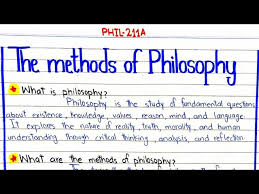 PHIL-211A
The methods of Philosophy
What is philosophy?
Philosophy is the study of fundamental questions
about existence, knowledge, values, reason, mind, and language.
It explores the nature of reality, truth, morality, and human
understanding through critical thinking, analysis, and reflection.
What are the methods of philosophy?